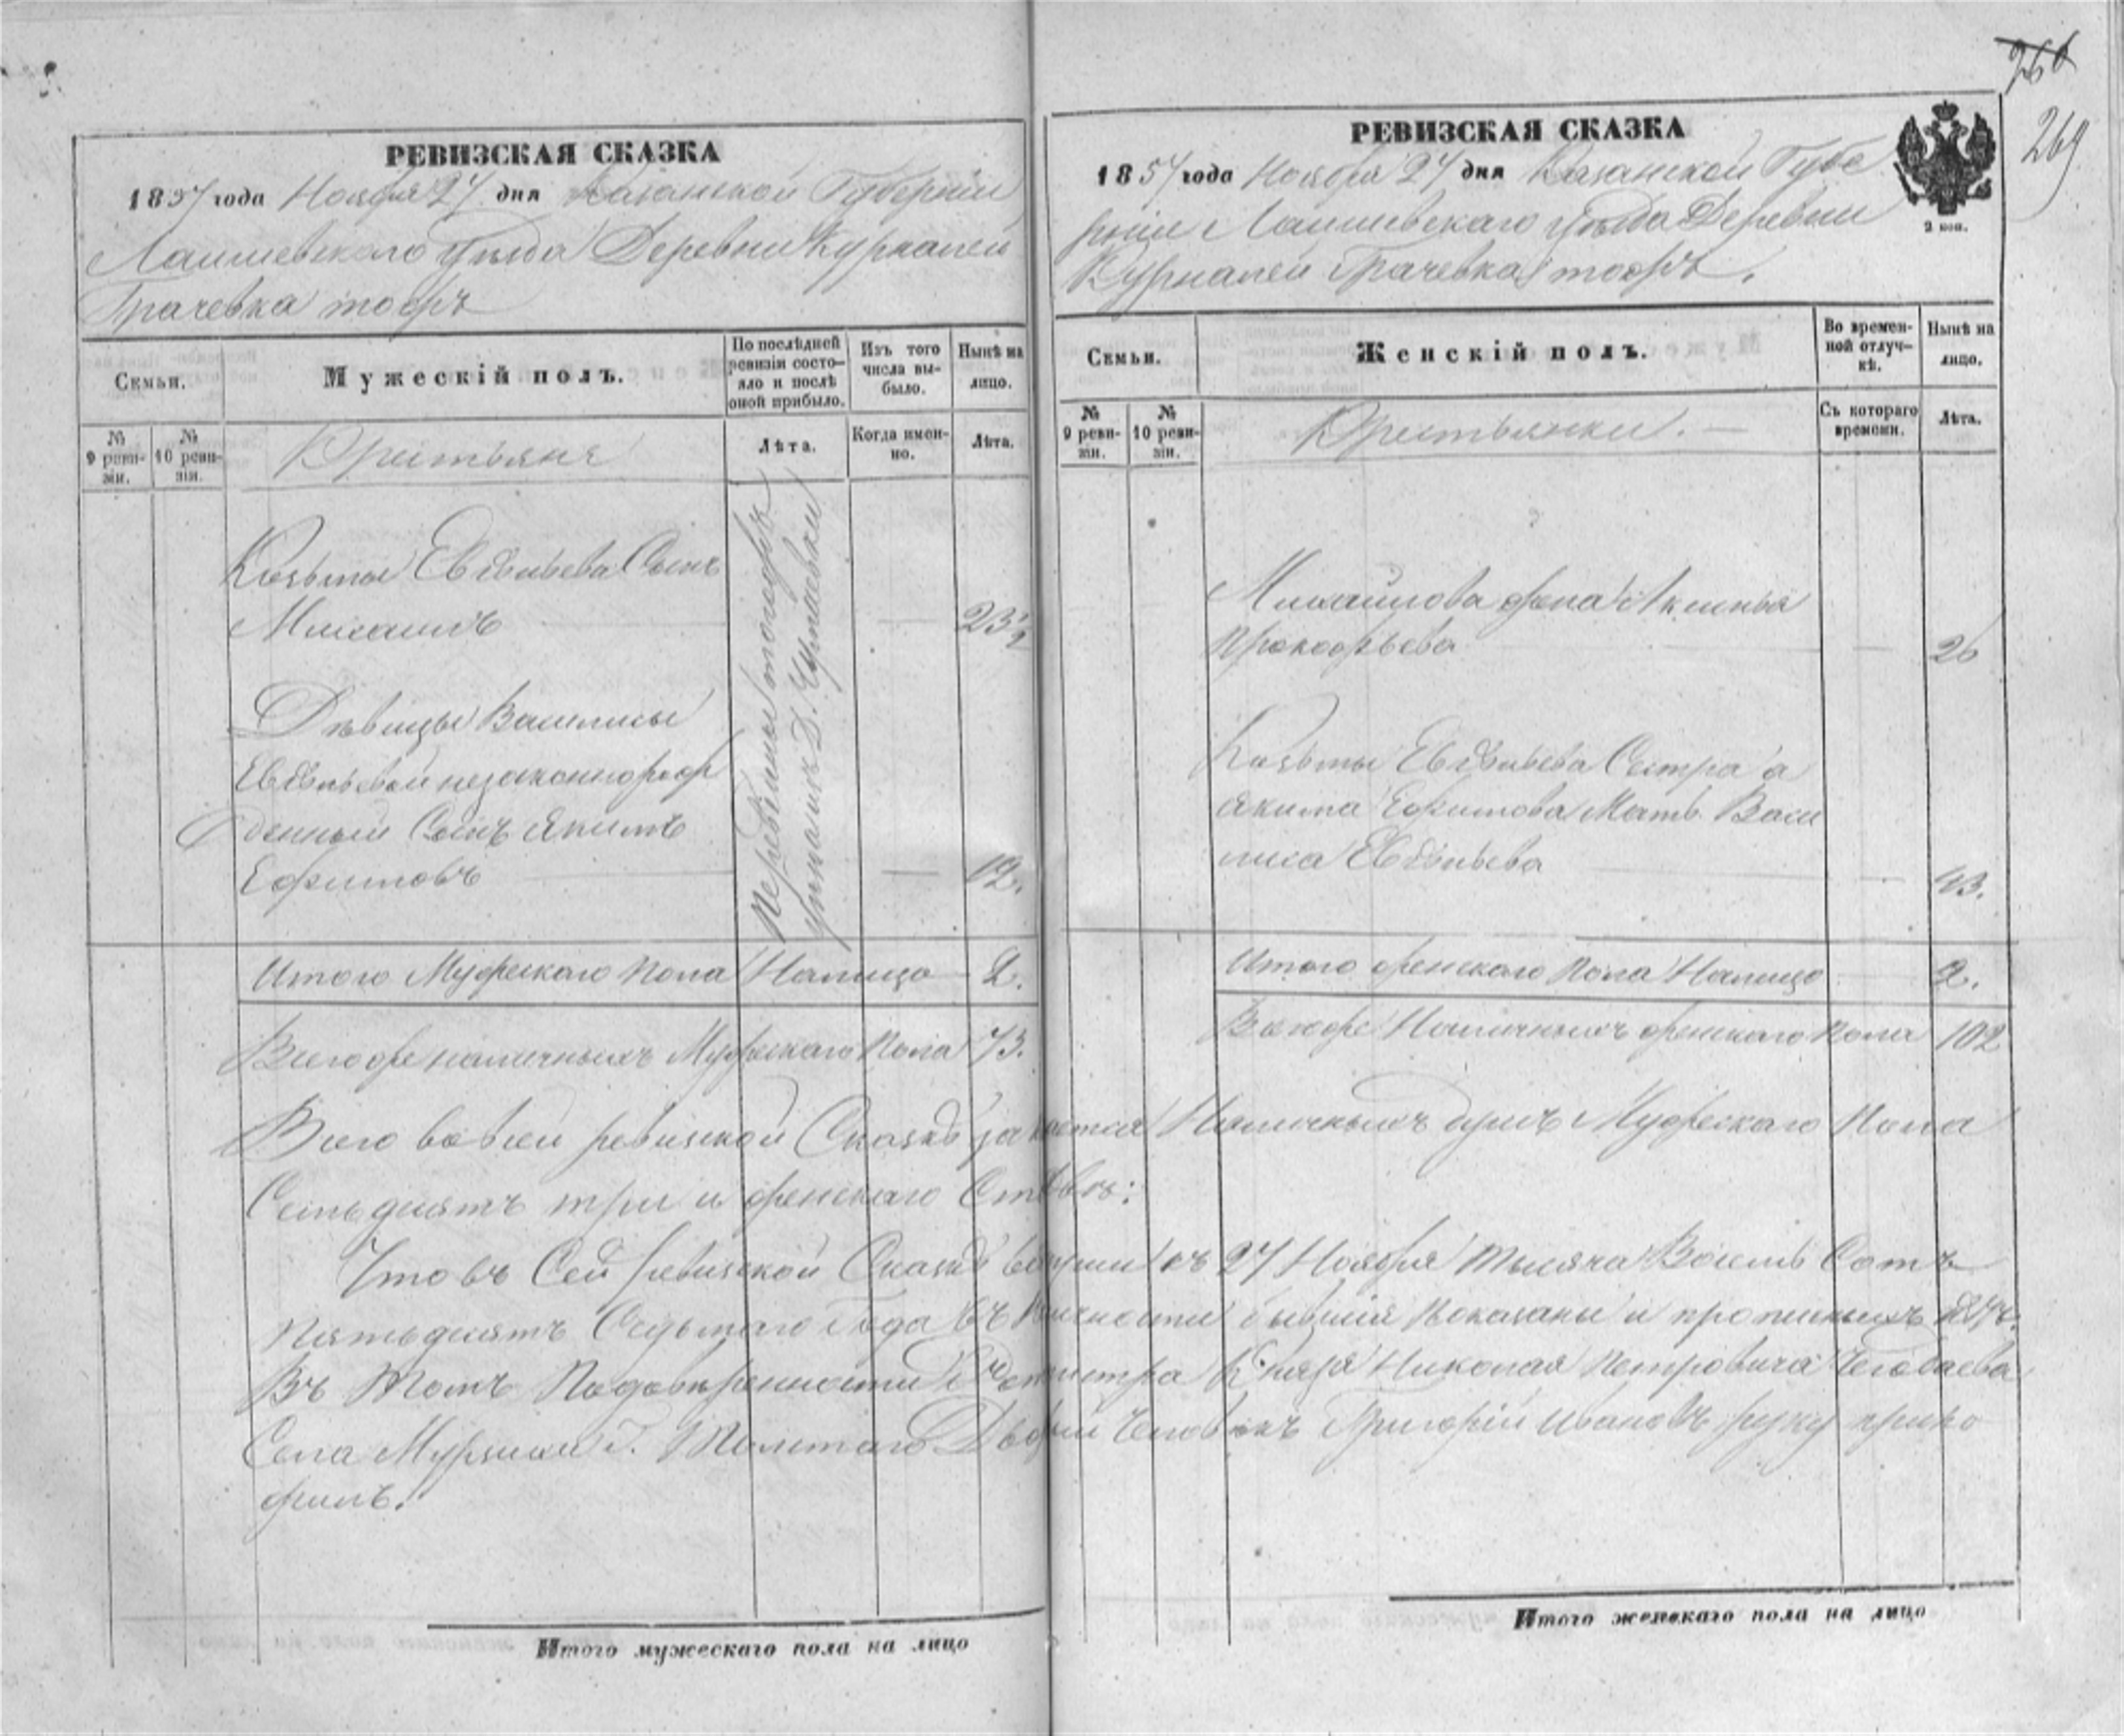 РЕВИЗСКАЯ СКАЗКА
1857 года Ноября 27 дня Казанской Губерніи
Лаишевского Уѣзда Деревни Курналей
Грачевка тожъ
Семьи.
Мужескій полъ.
По послѣдней ревизіи состояло и послѣ оной прибыло.
Изъ того числа выбыло.
Нынѣ на лицо.
№ 9 ревизіи.
№ 10 ревизіи.
Крестьяне
Лѣта.
Когда именно.
Лѣта.
Козьмы Евдѣньева Сынъ
Михаилъ 23 1/2
Дѣвицы Василисы
Евдѣньевой незаконнорож
денный Сынъ Якимъ
Ефимовъ 12.
Переведены тогожъ
Итого Мужескаго пола Налицо 2.
Всегоже наличныхъ Мужескаго Пола 73.
Всего вовсей ревизской Сказкѣ Наличныхъ душъ Мужескаго Пола
Семьдесятъ три и женскаго Сто
Что въ Сей ревизской Сказкѣ 27 Ноября тысяча Восемь Сотъ
Пятьдесятъ Седьмаго Года въ бывшія показаны и прописныхъ
Въ томъ Князя Николая Петровича
Села Д Человѣкъ Григорій Ивановъ руку прило
жилъ.
Итого мужескаго пола на лицо
760
269
РЕВИЗСКАЯ СКАЗКА
1857 года Ноября 27 дня Казанской Губе
рніи Лаишевскаго Уѣзда Деревни
Курналей Грачевка тожъ.
2 коп.
Семьи.
Женскій полъ.
Во временной отлучкѣ.
Нынѣ на лицо.
№ 9 ревизіи.
№ 10 ревизіи.
Крестьянки.
Съ котораго времени.
Лѣта.
Михайлова жена Аксинья
Прокофьева 26
Козьмы Евдѣньева Сестра а
Якима Ефимова Мать Васи
лиса Евдѣньева 43.
Итого женскаго пола Налицо 2.
Всегоже Наличныхъ женскаго пола 102
Итого женскаго пола на лицо